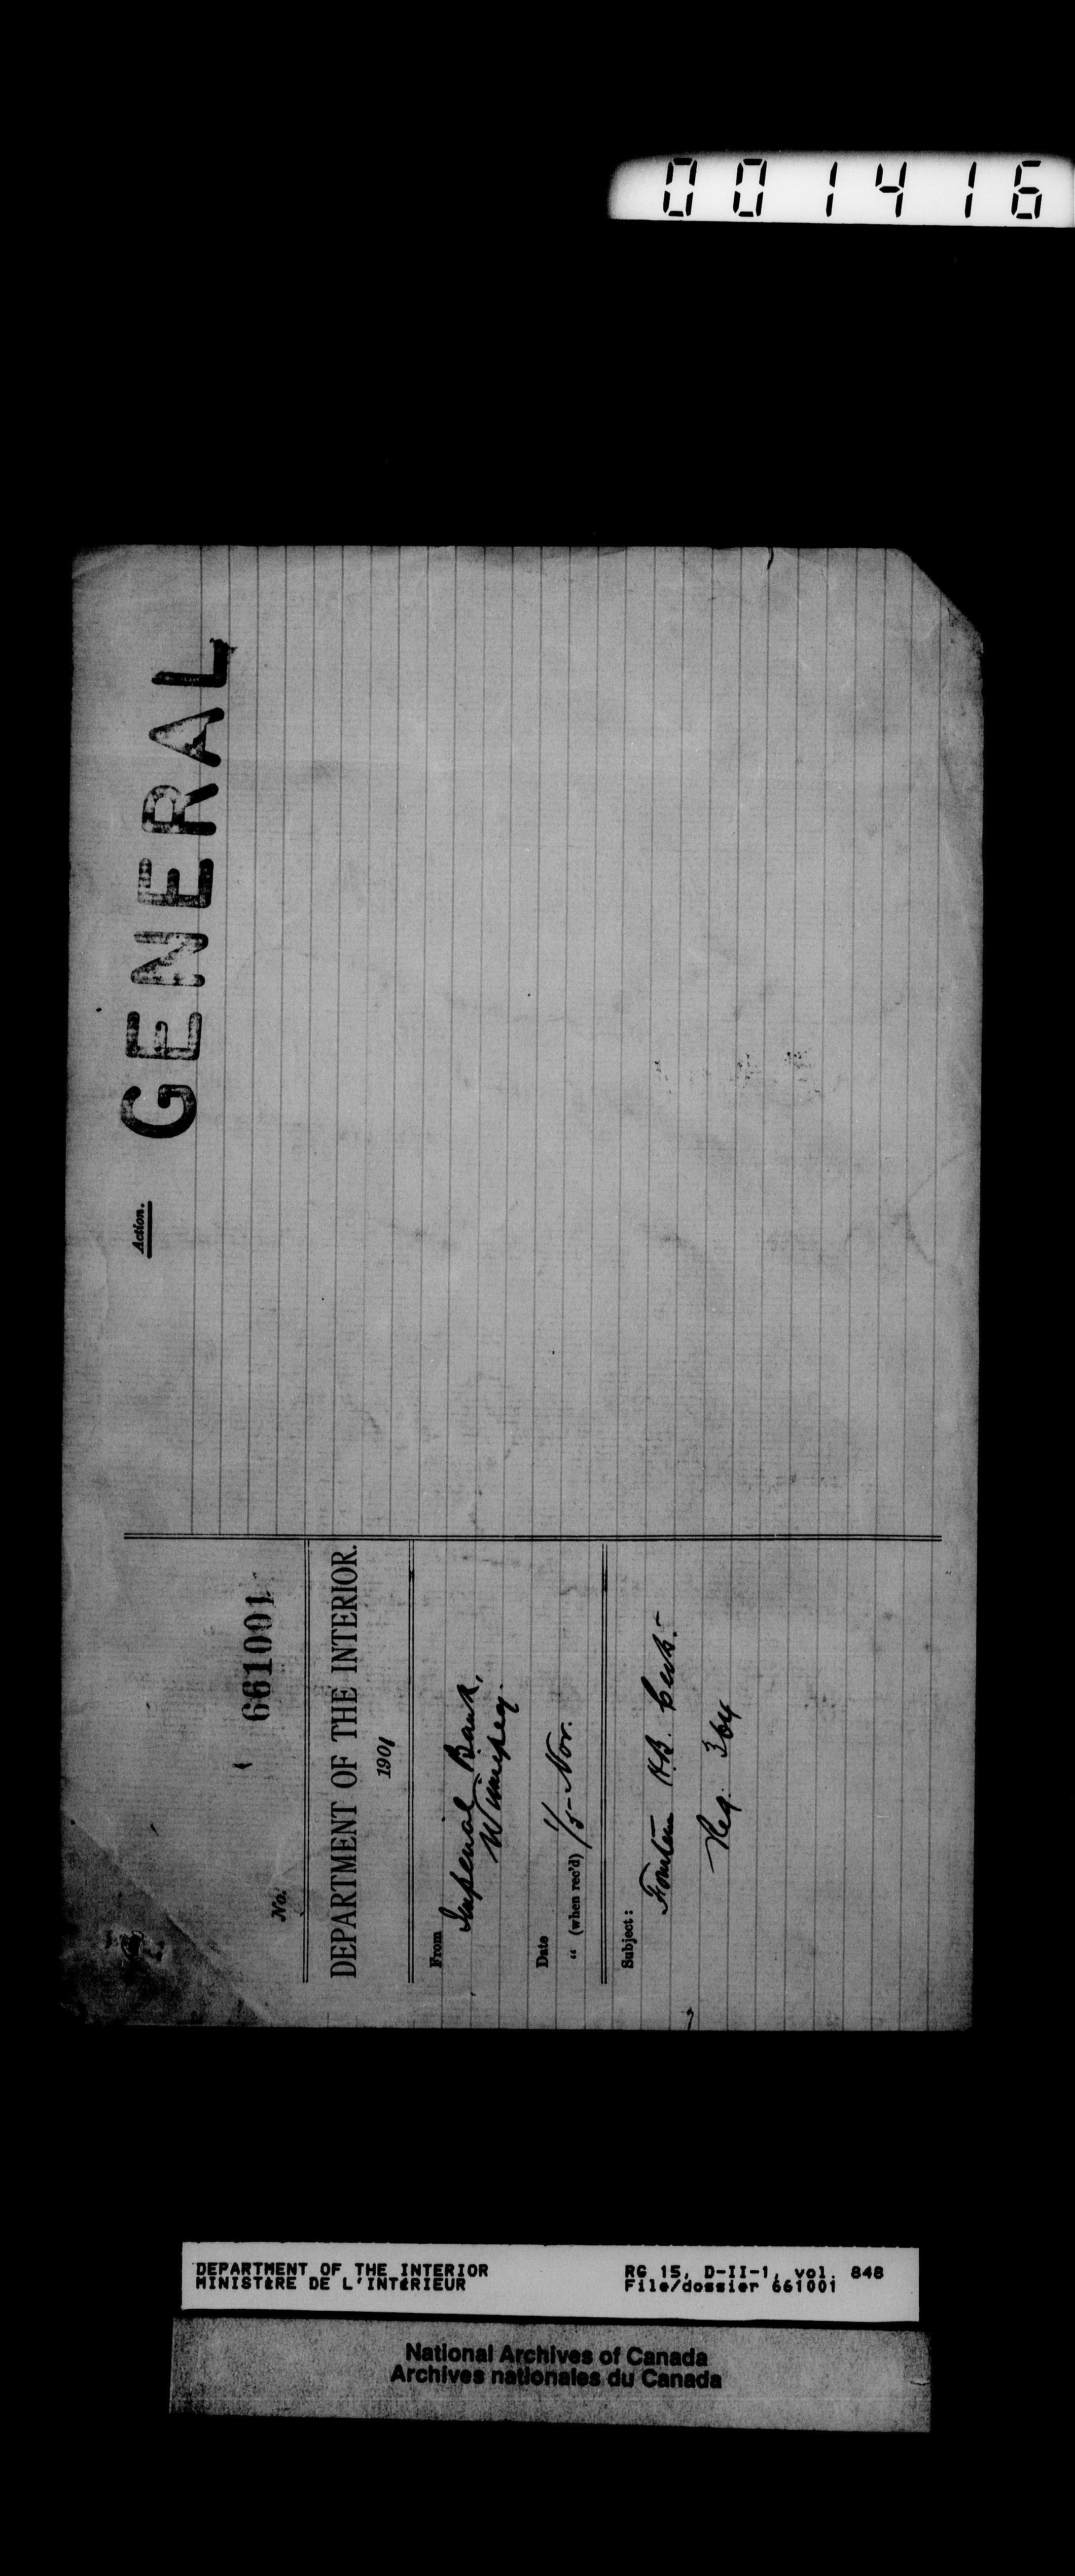 001416
Action.
GENERAL
661001
No.
DEPARTMENT OF THE INTERIOR.
1901
From Imperial Bank,
Winnipeg.
Date 1/
" (when rec'd) /5- Nov.
Subject:
Fourteen H.B.
Reg. 364
DEPARTMENT OF THE INTERIOR
MINISTÈRE DE L'INTÉRIEUR
RG 15, D-II-1, vol. 848
File/dossier 661001
National Archives of Canada
Archives nationales du Canada